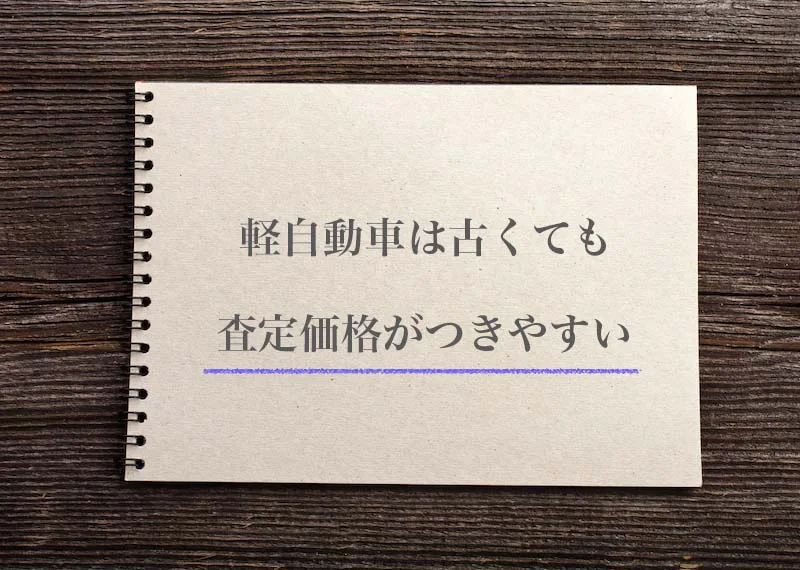 軽自動車は古くても
査定価格がつきやすい